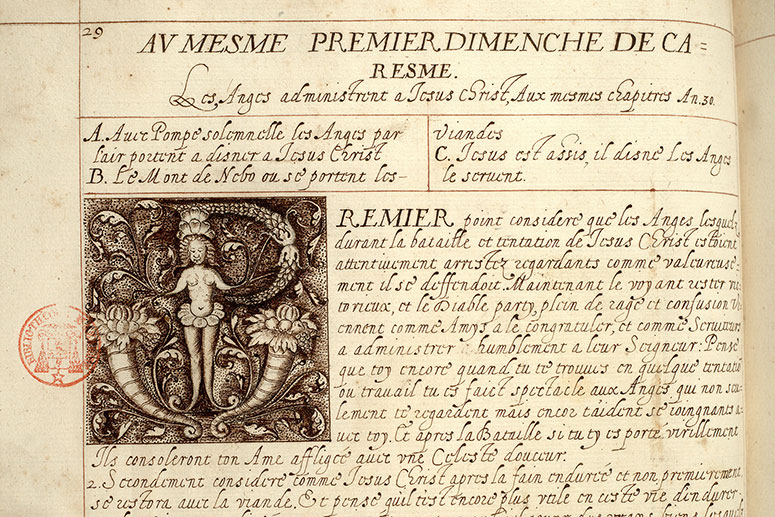 29
AV MESME PREMIER DIMENCHE DE CA=
RESME.
Les Anges administrent a Iesus Christ, Aux mesmes chapitres An. 30.
A. Auec Pompe solemnelle les Anges par
l'air portent a disner a Iesus Christ
B. Le Mont de Nebo ou se portent les-
viandes
C. Iesus est assis, il disne Les Anges
le seruent.
PREMIER point considere que les Anges lesquelz
durant la bataille et tentation de Iesus Christ estoient
attentiuement arrestez regardants comme valeureuse=
ment il se deffendoit. Maintenant le voyant rester vic
torieux, et le Diable party, plein de rage et confusion Vi
ennent comme Amys a le congratuler, et comme Seruiteurs
a administrer humblement a leur Seigneur. Pense
que toy encore quand tu te trouues en quelque tentatiō
ou trauail tu es faict spectacle aux Anges qui non seu=
lement te regardent mais encor t'aident se ioingnants a-
uec toy. Et apres la Bataille si tu t'y es porté virillement
Ils consoleront ton Ame affligee auec vne Celeste douceur.
2. Secondement considere comme Iesus Christ apres la fain enduree et non premierement
se restora auec la viande. Et pense qu'il t'est encore plus vtile en ceste vie d'endurer